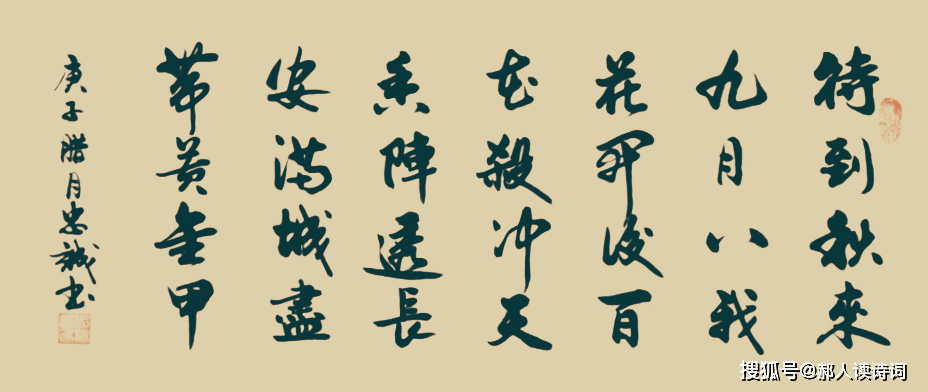 待到秋來
九月八我
花開後百
花殺冲天
香陣透長
安滿城盡
帶黃金甲
庚子腊月忠誠书
搜狐号@郝人读诗词